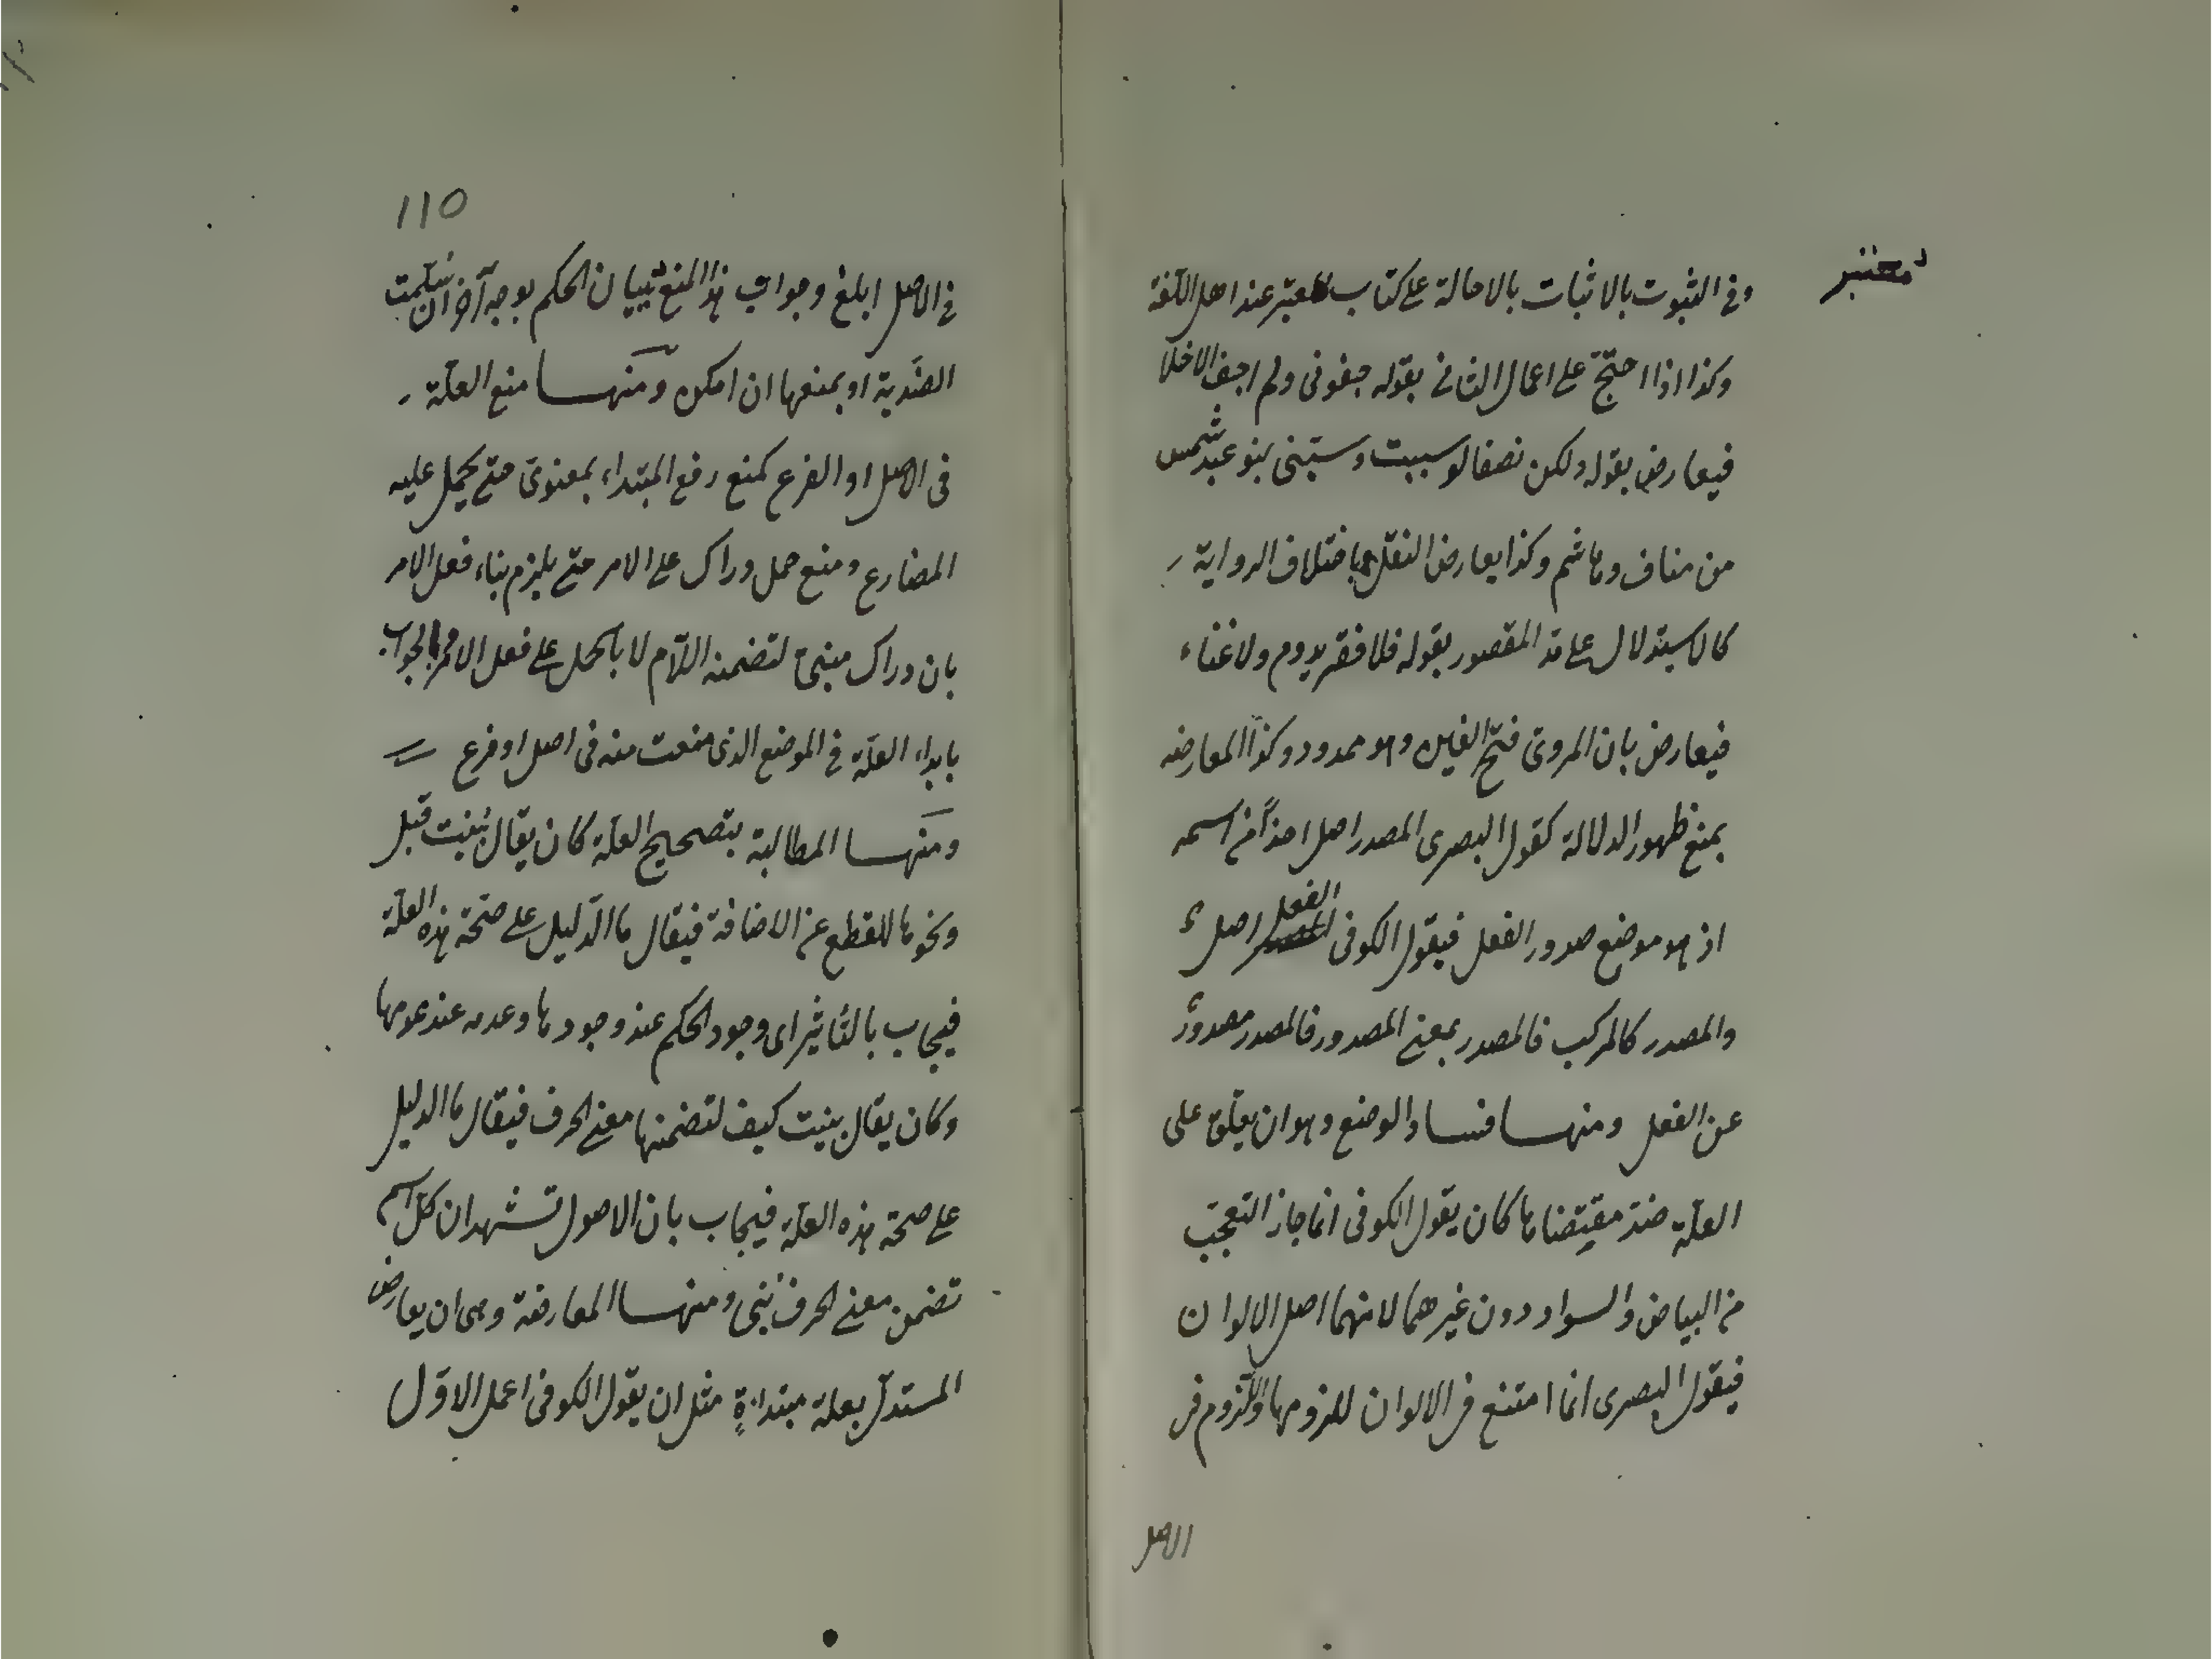 معتبر
وفى الثبوت بالاثبات بالاحالة على كتاب معتبر عند اهل اللغة
وكذا اذا احتج على اعمال الثانى بقوله جفونى ولم اجف الاخلا
فيعارض بقوله ولكن نصفا لو سببت وسبّنى بنو عبد شمس
من مناف وهاشم وكذا يعارض النقل باختلاف الرواية
كالاستدلال على مدّ المقصور بقوله فلا فقر يدوم ولا غناء
فيعارض بان المروىّ فتح الغين وهو ممدود وكذا المعارضه
بمنع ظهور الدلالة كقول البصرى المصدر اصل اخذاً من اسمه
اذ هو موضع صدور الفعل فيقول الكوفى الفعل اصل
والمصدر كالمركب فالمصدر بمعنى المصدور فالمصدر مصدورٌ
عن الفعل ومنها فساد الوضع وهو ان يعلّق على
العلّة ضدّ مقتضاها كان يقول الكوفى انما جاز التعجّب
من البياض والسواد دون غيرهما لانهما اصل الالوان
فيقول البصرى انما امتنع فى الالوان للزومها واللّزوم فى
الاصل
١١٥
فى الاصل ابلغ وجواب هذا المنع ببيان الحكم بوجه آخر ان سلّمت
الضدّية او بمنعها ان امكن ومنها منع العلّة
فى الاصل او الفرع كمنع رفع المبتداء بمعنوىّ حتى يحمل عليه
المضارع ومنع حمل دراك على الامر حتى يلزم بناء فعل الامر
بان دراك مبنىّ لتضمنه اللّام لا بالحمل على فعل الامر والجواب
بابداء العلّة فى الموضع الذى منعت منه فى اصل او فرع
ومنها المطالبة بتصحيح العلّة كان يقال بُنيت قبل
ونحوها للقطع عن الاضافة فيقال ما الدّليل على صحّة هذه العلّة
فيجاب بالتأثير اى وجود الحكم عند وجودها وعدمه عند عدمها
وكان يقال بنيت كيف لتضمنها معنى الحرف فيقال ما الدليل
على صحة هذه العلّة فيجاب بان الاصول تشهد ان كلّ اسم
تضمن معنى الحرف بُنى ومنها المعارضة وهى ان يعارض
المستدلّ بعلة مبتداءةٍ مثل ان يقول الكوفى اعمل الاوّل